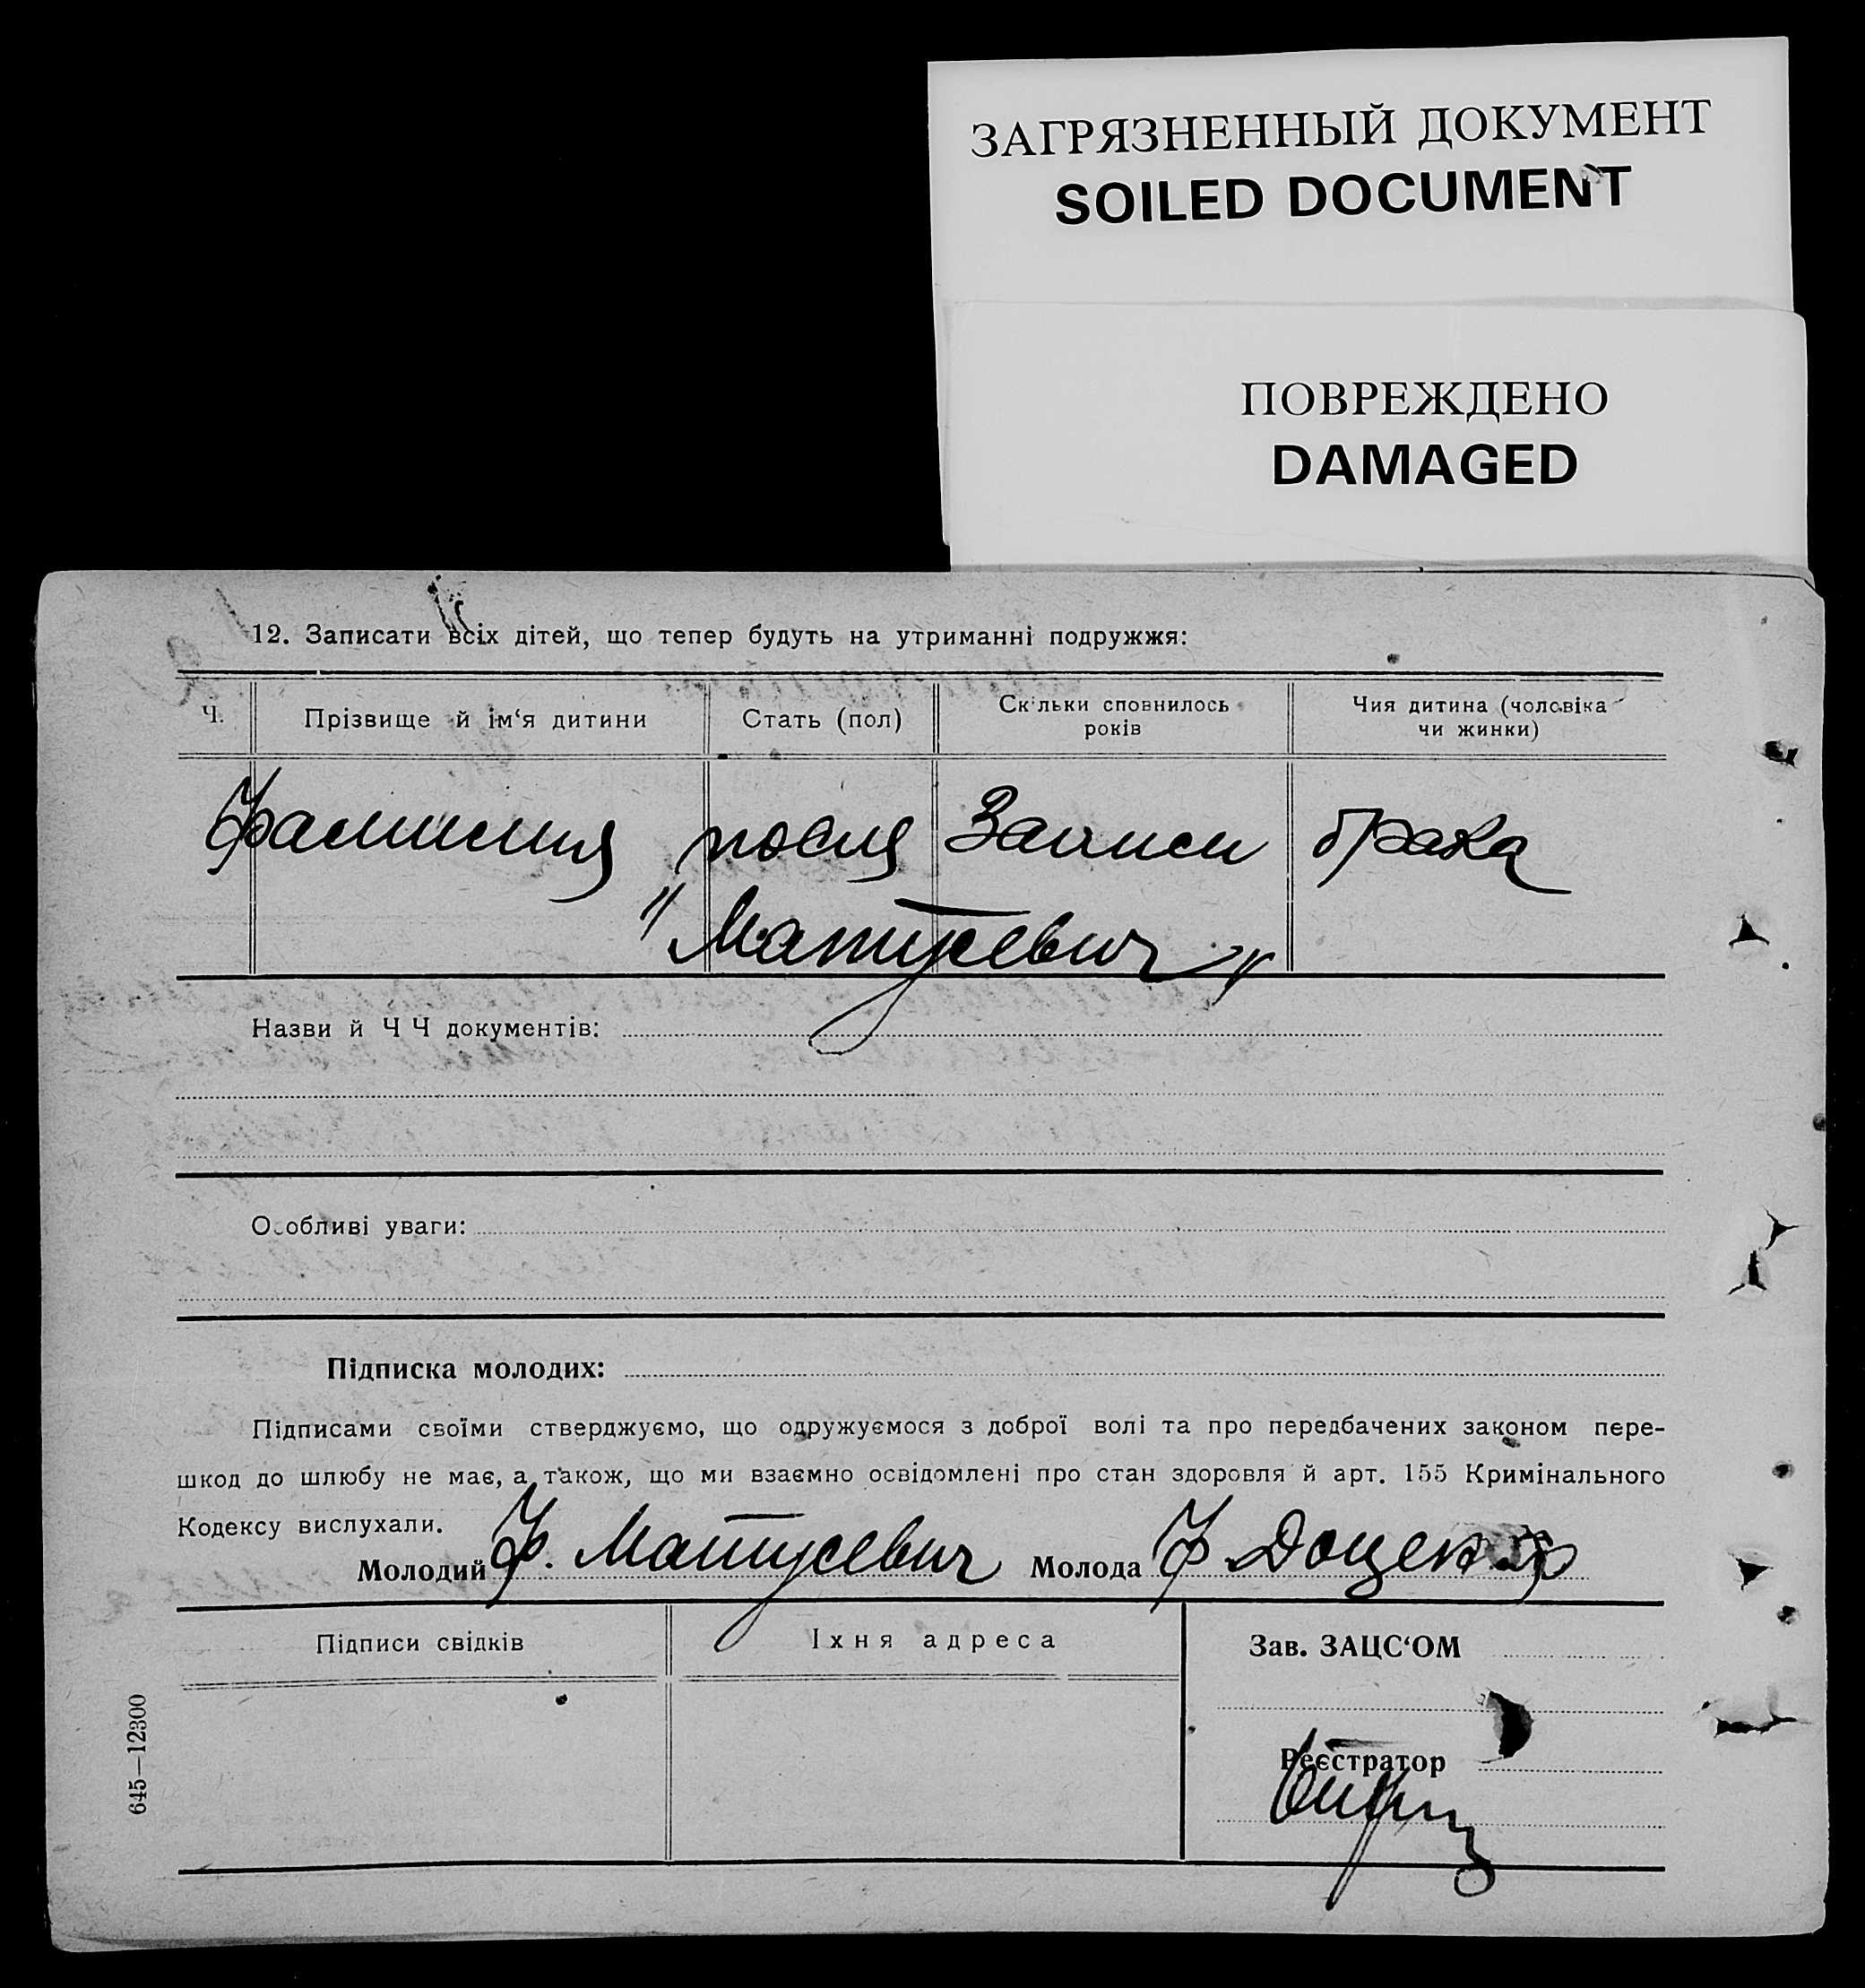 ЗАГРЯЗНЕННЫЙ ДОКУМЕНТ
SOILED DOCUMENT
ПОВРЕЖДЕНО
DAMAGED
12. Записати всіх дітей, що тепер будуть на утриманні подружжя:
Ч. Прізвище й ім‘я дитини Стать (пол) Скільки сповнилось років Чия дитина (чоловіка чи жинки)
Фамилия после Записи брака
"Матусевич"
Назви й ЧЧ документів:
Особливі уваги:
Підписка молодих:
Підписами своїми стверджуємо, що одружуємося з доброї волі та про передбачених законом пере-
шкод до шлюбу не має, а також, що ми взаємно освідомлені про стан здоровля й арт. 155 Кримінального
Кодексу вислухали.
Молодий Ф. Матусевич Молода Ф. Доценко
Підписи свідків Їхня адреса Зав. ЗАЦС‘ОМ
Реєстратор
645—12300